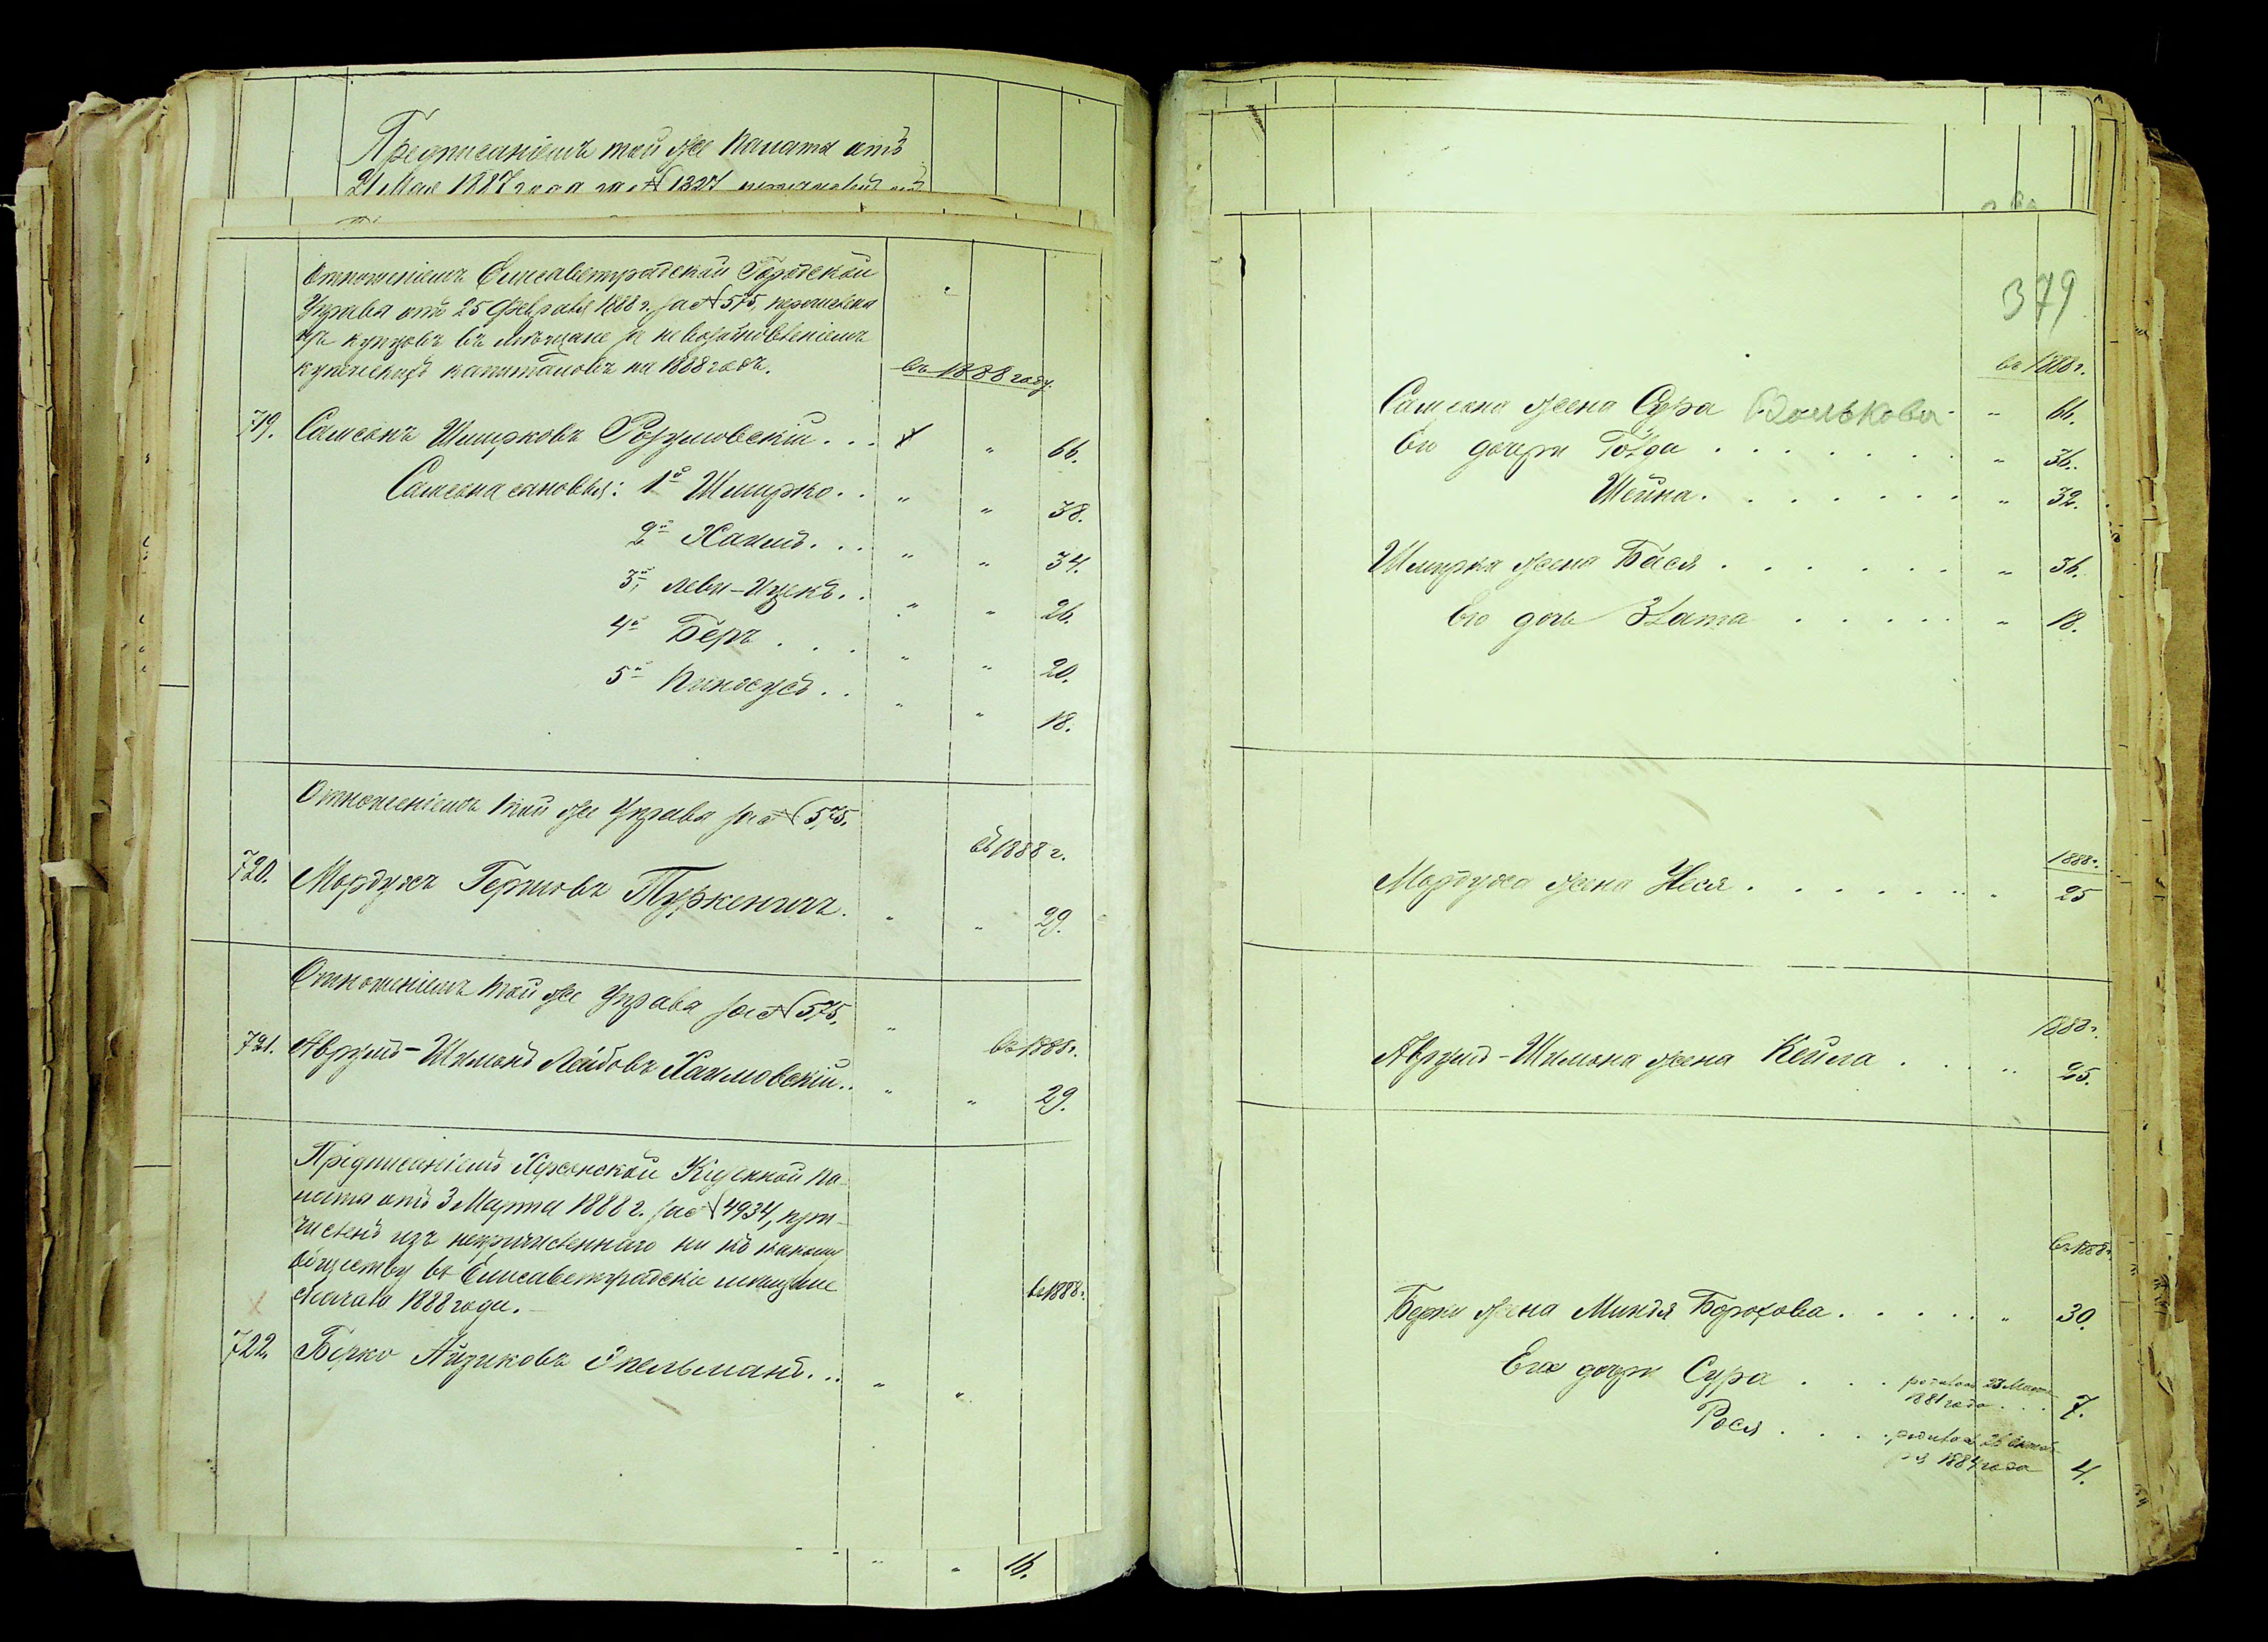 Предписаніемъ той же Палаты отъ
21 Мая 1887 года за № 1327
Отношеніемъ Елисаветградской Городской
Управы отъ 25 Февраля 1888 г. за № 575, перечислены
изъ купцовъ въ мѣщане за невозобновленіемъ
купеческихъ капиталовъ на 1888 годъ.
въ 1888 году.
719. Самсонъ Шмирковъ Розумовскій . . . 66.
Самсона сыновья: 1й Шмирко . . " " 38.
2й Хаимъ . . . " " 34.
3й Леви-Ицекъ . . " " 26.
4й Беръ . . . " " 20.
5й Пинхусъ . . " " 18.
Отношеніемъ той же Управы за № 575.
въ 1888 г.
720. Мордухъ Гершовъ Туркеничъ . " " 29.
Отношеніемъ той же Управы за № 575. "
въ 1888 г.
721. Аврумъ-Шимонъ Лейбовъ Хаимовскій . . " " 29.
Предписаніемъ Херсонской Казенной Па-
латы отъ 3 Марта 1888 г. за № 4934, при-
численъ изъ непричисленнаго ни къ какому
обществу въ Елисаветградскіе мѣщане
съ начала 1888 года.
въ 1888 г.
722. Берко Айзиковъ Спельманъ . . . " "
" " 16.
379
въ 1888 г.
Самсона жена Сура Волькова " 66.
Его дочери Голда . . . . . . . " 36.
Шейна . . . . . . . " 32.
Шмирка жена Бася . . . . . . " 36.
Его дочь Злата . . . . . " 18.
1888 г.
Мордуха жена Неся . . . . . . . . " 25
1888 г.
Аврумъ-Шимона жена Кейла . . . " 25.
въ 1888 г.
Берки жена Миндя Борохова . . . . . " 30.
Его дочери Сура . . . родилась 23 Марта
1881 года . . . 7.
Рося . . . . родилась 26 Октяб-
ря 1884 года 4.